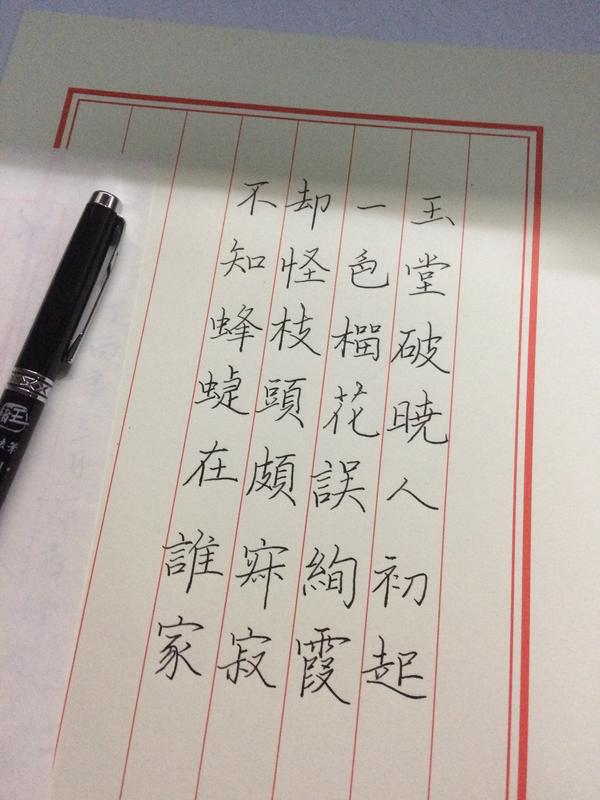 玉堂破暁人初起
一色榴花誤絢霞
却怪枝頭頗寂
不知蜂蜨在誰家